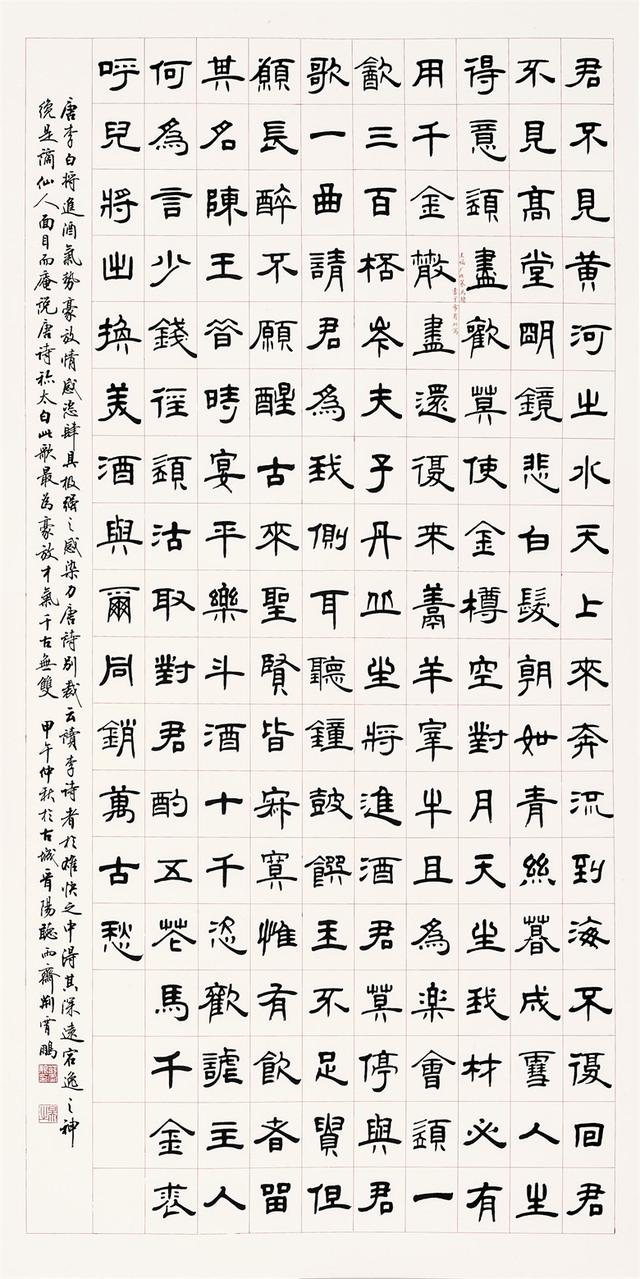 君不見黃河之水天上來奔流到海不復回君
不見高堂明鏡悲白髮朝如青絲暮成雪人生
得意須盡歡莫使金樽空對月天生我材必有
用千金散盡還復來烹羊宰牛且為樂會須一
飲三百桮岑夫子丹丘生將進酒君莫停與君
歌一曲請君為我側耳聽鐘鼓饌玉不足貴但
願長醉不願醒古來聖賢皆寂寞惟有飲者留
其名陳王昔時宴平樂斗酒十千恣歡謔主人
何為言少錢徑須沽取對君酌五花馬千金裘
呼兒將出換美酒與爾同銷萬古愁
唐李白將進酒氣勢豪放情感恣肆具極強之感染力唐詩別裁云讀李詩者於雄快之中得其深遠宕逸之神
纔是謫仙人面目而庵說唐詩稱太白此歌最為豪放才氣千古無雙 甲午仲秋於古城晉陽聽雨齋荊霄鵬